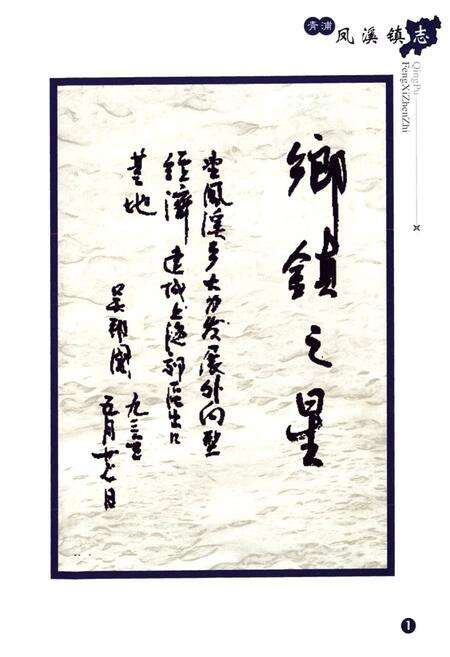 青浦 凤溪镇志
QingPu
FengXiZhenZhi
鄉鎮之星
望凤溪乡大力发展外向型
经济 建成上海郊区出口
基地
九三年
五月十七日
1